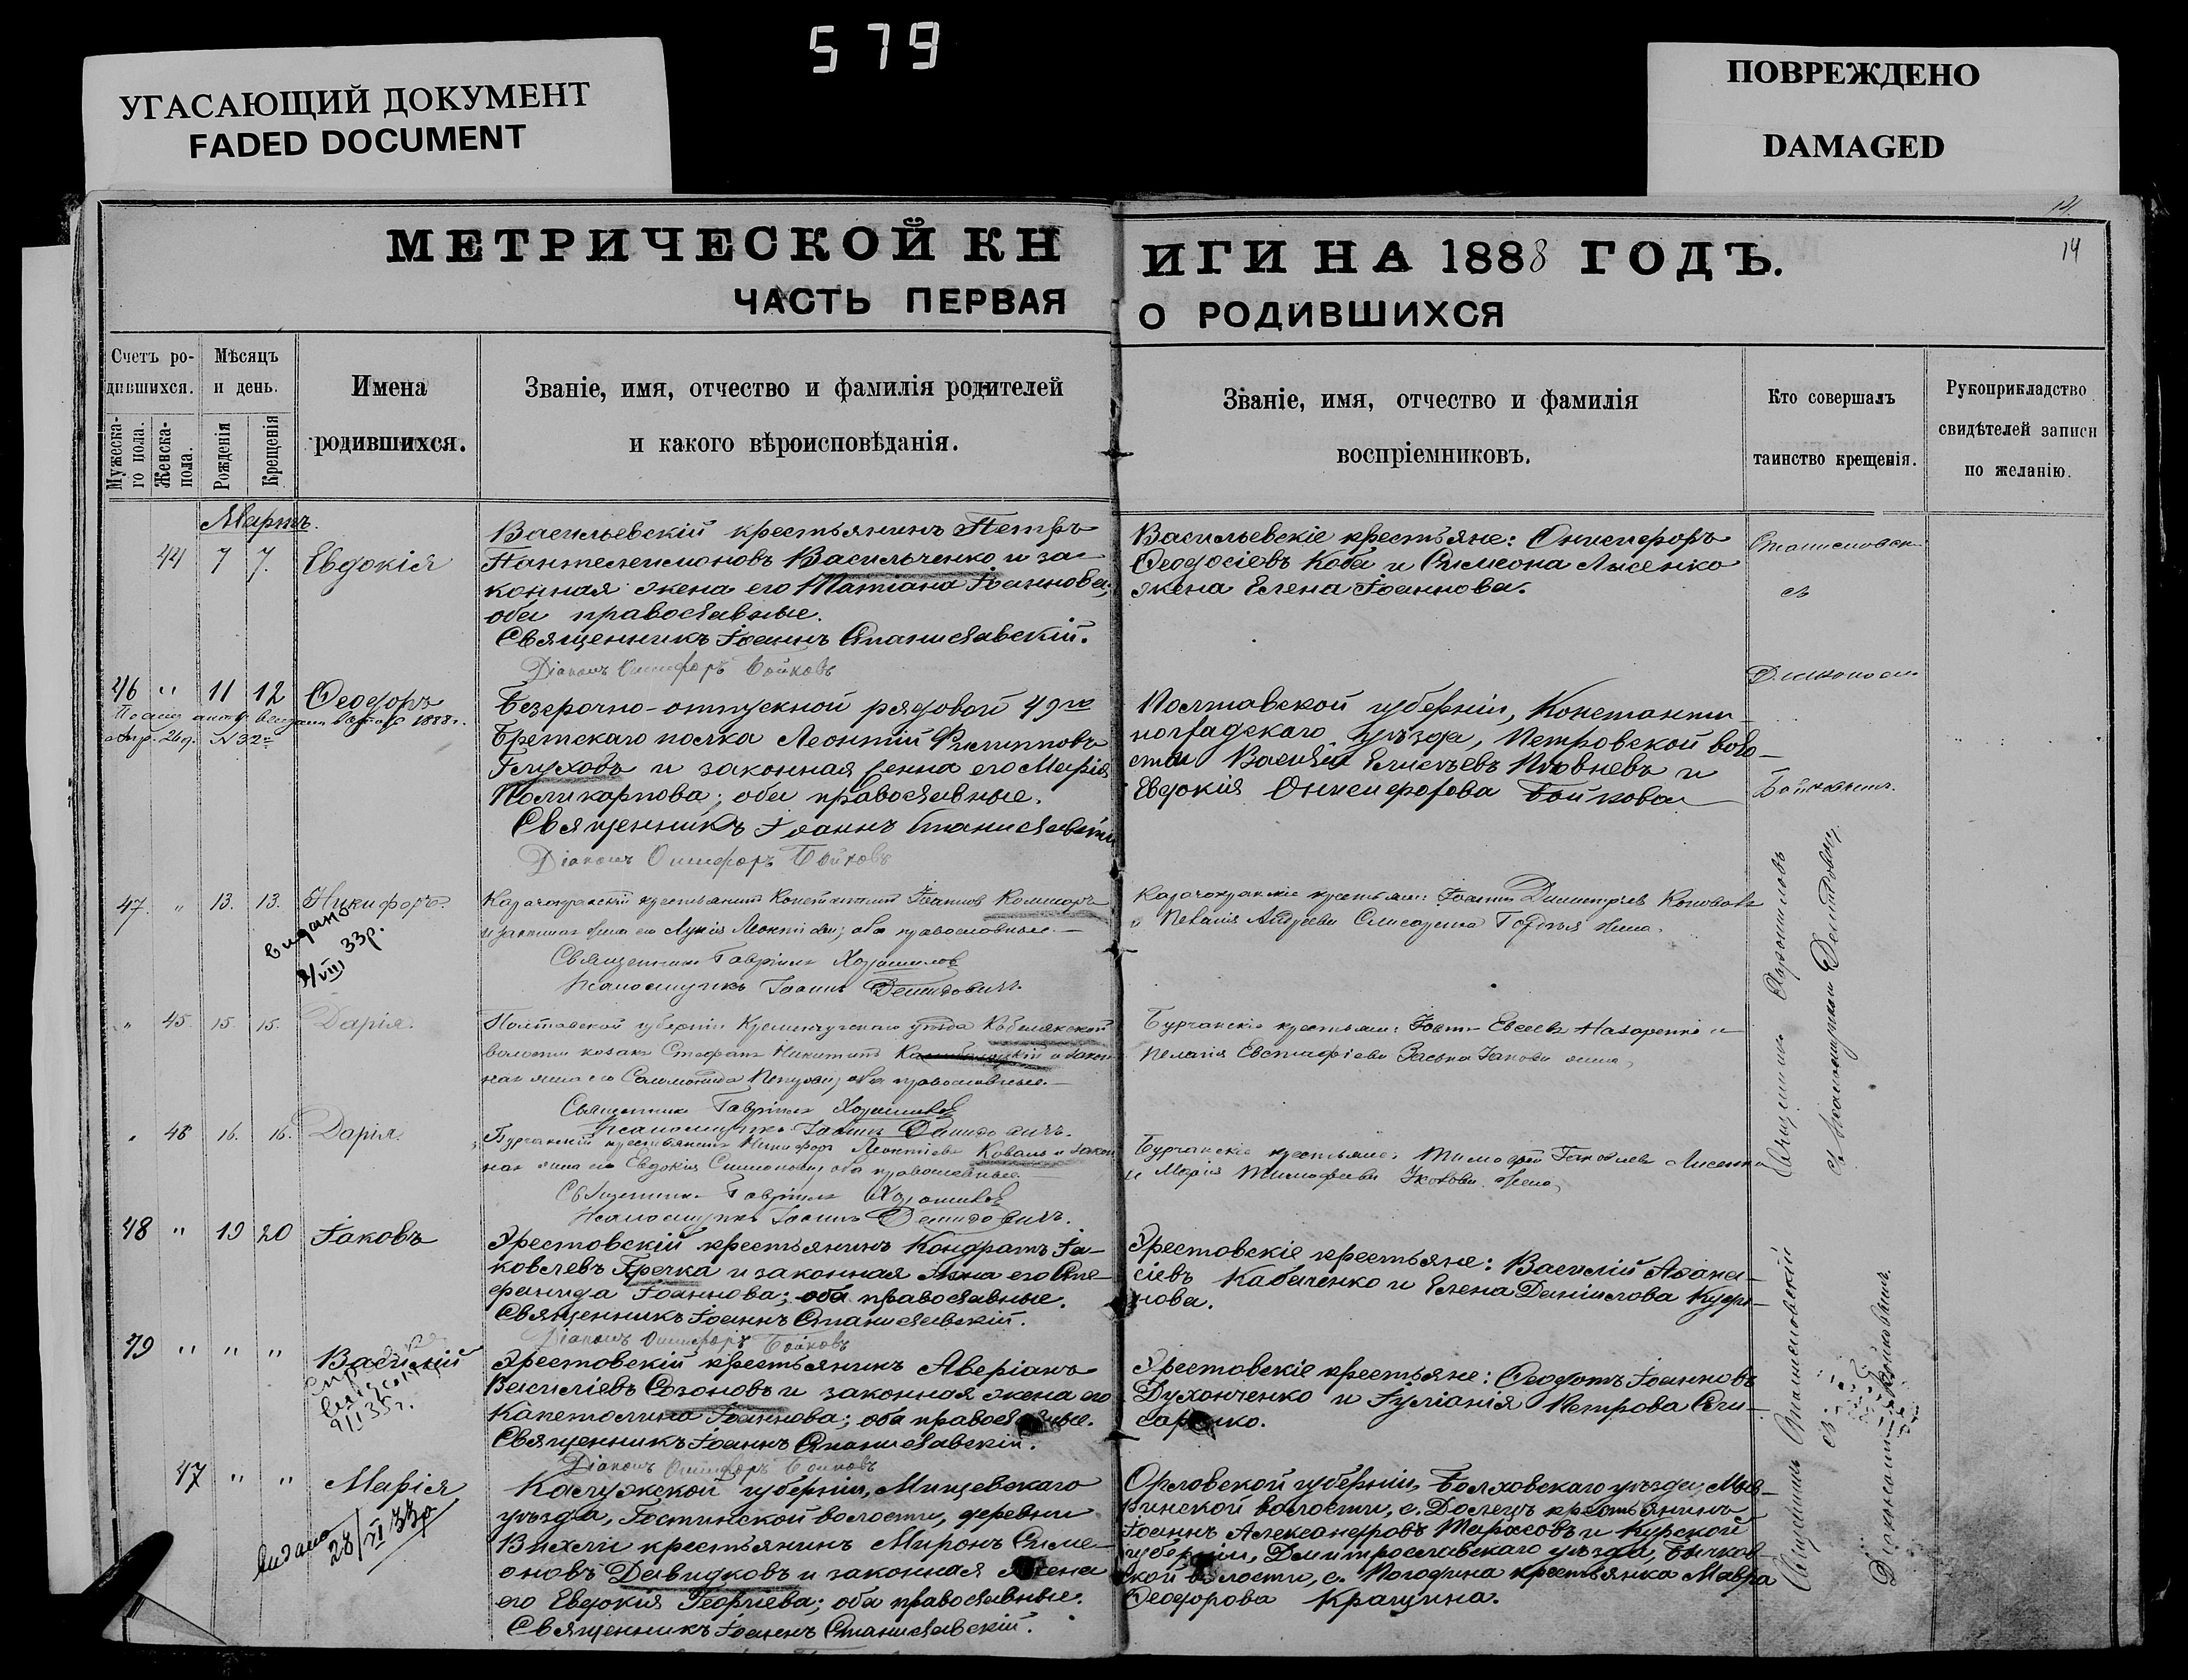 579
УГАСАЮЩИЙ ДОКУМЕНТ
FADED DOCUMENT
ПОВРЕЖДЕНО
DAMAGED
14
МЕТРИЧЕСКОЙ КН
ИГИ НА 1888 ГОДЪ.
ЧАСТЬ ПЕРВАЯ
О РОДИВШИХСЯ
Счетъ ро-
дившихся.
Мужеска-
го пола.
Женска-
пола.
Мѣсяцъ
и день.
Рожденія
Крещенія
Имена
родившихся.
Званіе, имя, отчество и фамилія родителей
и какого вѣроисповѣданія.
Званіе, имя, отчество и фамилія
воспріемниковъ.
Кто совершалъ
таинство крещенія.
Рукоприкладство
свидѣтелей записи
по желанію.
Мартъ.
44 7 7. Евдокія
Васильевскій крестьянинъ Петръ
Пантелеимоновъ Васильченко и за-
конная жена его Татіана Іоаннова;
оба православные.
Священникъ Іоаннъ Станиславскій.
Діаконъ Онисифоръ Бойковъ
Васильевскіе крестьяне: Онисифоръ
Ѳеодосіевъ Коба и Симеона Лысенко
жена Елена Іоаннова.
съ
46 " 11 12 Ѳеодоръ
1888 г.
Безсрочно-отпускной рядовой 49го
Брестскаго полка Леонтій Филипповъ
Глуховъ и законная жена его Марія
Поликарпова; оба православные.
Священникъ Іоаннъ Станиславскій
Діаконъ Онисифоръ Бойковъ
Полтавской губерніи, Константи-
ноградскаго уѣзда, Петровской воло-
сти Василій Елисѣевъ и
Евдокія Онисифорова Бойкова
47. " 13. 13. Никифоръ.
выдано
33р.
Карачокракскій крестьянинъ Константинъ Іоанновъ
и законная жена его Лукія Леонтіева; оба православные.
Священникъ Гавріилъ
Псаломщикъ Іоаннъ Демидовичъ.
Карачокракскіе крестьяне: Іоаннъ Димитріевъ Коновалъ
и Пелагія Андреева жена.
" 45. 15. 15. Дарія.
Полтавской губерніи Кременчугскаго уѣзда Кобелякской
волости козакъ Стефанъ Никитинъ и закон
ная жена его Соломонида; оба православные.
Священникъ Гавріилъ
Псаломщикъ Іоаннъ Демидовичъ.
Бурчакскіе крестьяне: Іоаннъ Евсеевъ Назаренко и
Пелагія жена,
" 46 16. 16. Дарія.
Бурчакскій крестьянинъ Никифоръ Леонтіевъ Коваль и закон
ная жена его Евдокія Симеонова; оба православные.
Священникъ Гавріилъ
Псаломщикъ Іоаннъ Демидовичъ.
Бурчакскіе крестьяне: Тимофей Яковлевъ Лисенко
и Марія Тимофеева жена,
48 " 19 20 Іаковъ
Эрестовскій крестьянинъ Кондратъ Іа-
ковлевъ Гречка и законная жена его Сте-
фанида Іоаннова; оба православные.
Священникъ Іоаннъ Станиславскій.
Діаконъ Онисифоръ Бойковъ
Эрестовскіе крестьяне: Василій Аѳана-
сіевъ Кабаченко и Елена Даніилова
нова.
49 " " " Василій
Эрестовскій крестьянинъ Аверіанъ
Василіевъ Созоновъ и законная жена его
Капетолина Іоаннова; оба православные.
Священникъ Іоаннъ Станиславскій.
Діаконъ Онисифоръ Бойковъ
Эрестовскіе крестьяне: Ѳеодотъ Іоанновъ
Духонченко и Іуліанія Петрова Сли-
саренко.
47 " " Марія
выдано
28/VI 33р
Калужской губерніи, Мищевскаго
уѣзда, Гостинской волости, деревни
крестьянинъ Миронъ Симе-
оновъ Давидковъ и законная жена
его Евдокія Георгіева; оба православные.
Священникъ Іоаннъ Станиславскій.
Орловской губерніи, Болховскаго уѣзда,
волости, с. Долецъ крестьянинъ
Іоаннъ Александровъ Тарасовъ и Курской
губерніи, Дмитрославскаго уѣзда, Бычков-
ской волости, с. Погодина крестьянка Мавра
Ѳеодорова Кращина.
Священникъ
съ Псаломщикомъ Демидовичемъ
Священникъ Станиславскій
съ
Діакономъ Бойковымъ.